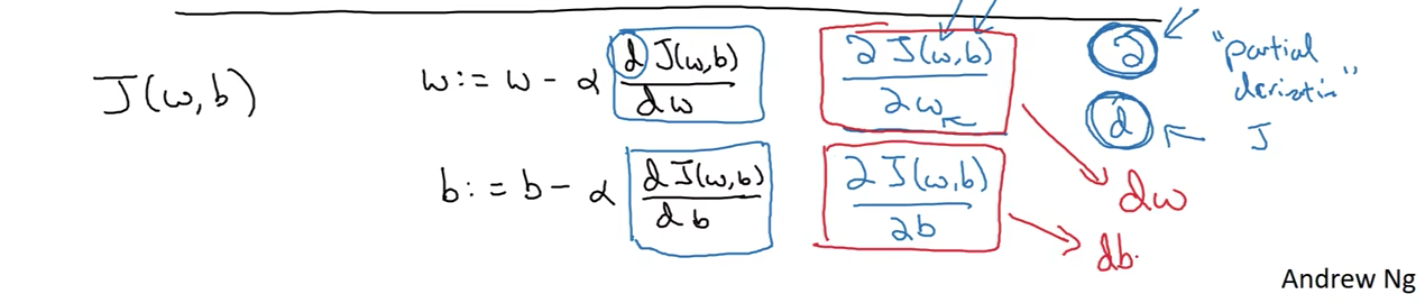 J(w,b)
w := w - α d J(w,b) / dw
∂ J(w,b) / ∂w
∂ "partial derivative"
d J
b := b - α d J(w,b) / db
∂ J(w,b) / ∂b
dw
db
Andrew Ng